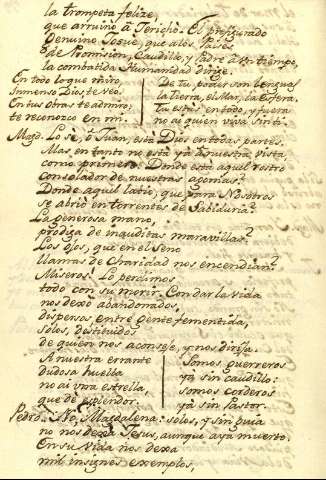 la trompeta felize,
que arruinò à Jericho. El prefigurado
Genuino Josuè, que a los Paises
de Promision, Caudillo, y Padre à un tiempo,
la combatida Humanidad dirige.
En todo lo que miro,
Inmenso Dios, te veo.
En tus obras te admiro,
te reconozco en mi.
De tu poder son lenguas
la tierra, el Mar, la esfera.
Tu estàs en todo, y fuera
no ai quien viva sin ti.
Magd. Lo sè, ò Juan, està Dios en todas partes.
Mas, en tanto no està yà à nuestra vista,
como primero. Donde està aquel rostro
consolador de nuestras agonias?
Donde aquel labio, que para Nosotros
se abriò en torrentes de Sabiduria?
La generosa mano,
prodiga de inauditas maravillas?
Los ojos, que en el seno
llamas de Charidad nos encendian?
Miseros! Lo perdimos
todo con su morir. Con dar la vida
nos dexò abandonados,
dispersos entre gente fementida,
solos, destituidos
de quien nos aconseje, y nos dirija.
A nuestra errante
dudosa huella
no ai viva estrella,
que dè esplendor.
Somos guerreros
yà sin caudillo:
somos corderos
yà sin Pastor.
Pedro. No, Magdalena: solos, y sin guia
no nos dexa Jesus, aunque aya muerto.
En su vida nos dexa
mil insignes exemplos,